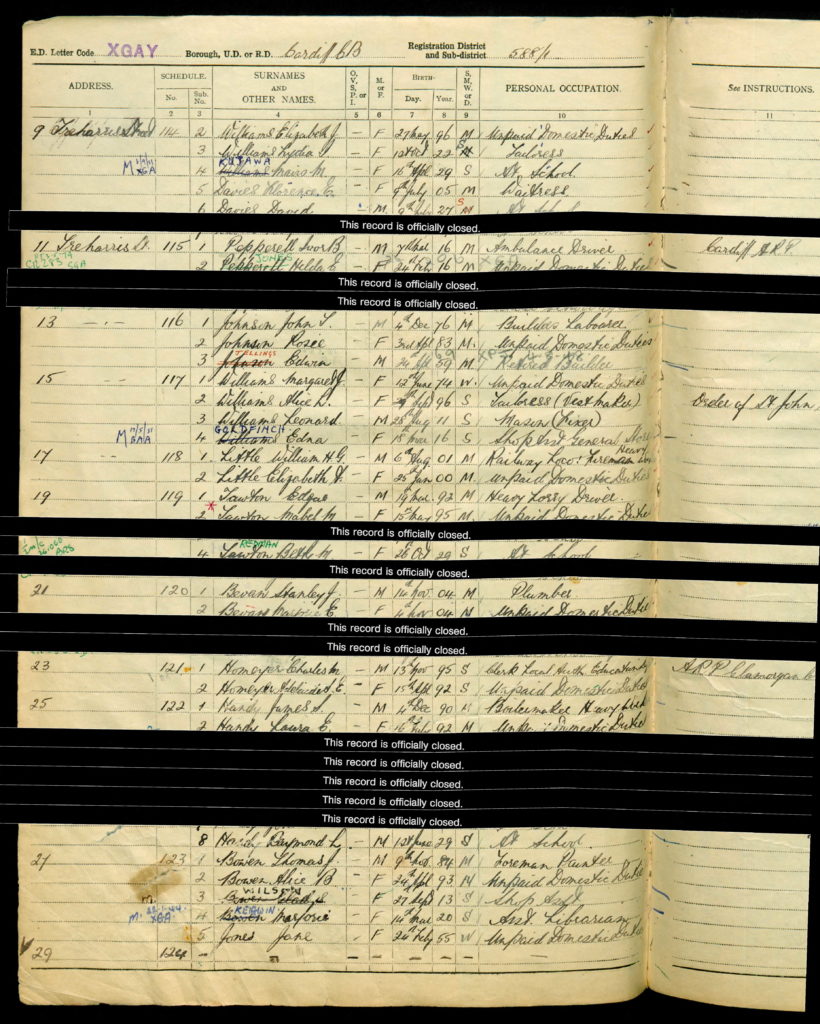 E.D. Letter Code XGAY Borough, U.D. or R.D. Cardiff CB Registration District and Sub-district 588/1
ADDRESS. SCHEDULE. SURNAMES AND OTHER NAMES. O, V, S, P, or I M. or F. BIRTH— S, M, W, or D. PERSONAL OCCUPATION. See INSTRUCTIONS.
No. Sub. No. Day. Year.
1 2 3 4 5 6 7 8 9 10 11
9 Treharris Street 114 2 Williams Elizabeth J. – F 27 May 96 M Unpaid Domestic Duties
3 Williams Lydia – F 22 S Tailoress
KUTAWA
M XGA 4 Williams M. – F 16th Apl 29 S At School
5 Davies Florence E. – F 9th July 05 M Waitress
6 Davies David – M 27 S At School
This record is officially closed.
11 Treharris St. 115 1 Pepperell Ivor B – M 7th 16 M Ambulance Driver Cardiff A.R.P.
JONES
2 Pepperell Hilda E – F 24 Feb 16 M Unpaid Domestic Duties
This record is officially closed.
This record is officially closed.
13 116 1 Johnson John – M 4th Dec 76 M Builders Labourer
2 Johnson – F 3rd Apl 83 M Unpaid Domestic Duties
JELLINGS
3 Johnson Edwin – M 24 59 M Retired Builder
15 117 1 Williams Margaret J. – F 12th June 74 W. Unpaid Domestic Duties
2 Williams Alice L. – F 96 S Tailoress (Vestmaker) Order of St John
3 Williams Leonard – M 28th Aug 11 S Mason (Fixer)
GOLDFINCH
M 4 Williams Edna – F 18 Mar 16 S Shop Asst General Store
17 118 1 Little William H G. – M 6th Aug 01 M Railway Loco: Fireman Heavy
2 Little Elizabeth – F 25th Jan 00 M. Unpaid Domestic Duties
19 119 1 Tawton Edgar – M 19 Mar. 92 M Heavy Lorry Driver.
* 2 Tawton Mabel M – F 15th May 95 M Unpaid Domestic Duties
This record is officially closed.
REDMAN
4 Tawton Beth M – F 26 Oct 29 S At School
This record is officially closed.
21 120 1 Bevan Stanley J. – M 14th Nov. 04 M Plumber
2 Bevan E – F 4 Nov 04 M Unpaid Domestic Duties
This record is officially closed.
This record is officially closed.
23 121 1 Homeyer Charles M – M 13th Nov 95 S Clerk Local Auth Education A.R.P. Glamorgan
2 Homeyer E. – F 15th Apl 92 S Unpaid Domestic Duties
25 122 1 Handy James – M 4th Dec 90 M Boilermaker Heavy Work
2 Handy Laura E. – F 16th July 92 M Unpaid Domestic Duties
This record is officially closed.
This record is officially closed.
This record is officially closed.
This record is officially closed.
This record is officially closed.
8 Handy Raymond L. – M 12th June 29 S At School.
27 123 1 Bowen Thomas J. – M 9th Nov. 84 M Foreman Painter
2 Bowen Alice B – F 24th Apl 93 M Unpaid Domestic Duties
WILSON
3 Bowen Gladys – F 27 Sept 13 S Shop Asst
M. XGA 4 Bowen Marjorie – F 14th Mar 20 S Asst Librarian
5 Jones Jane – F 24th July 55 W Unpaid Domestic Duties
29 124 – – – – – – – –